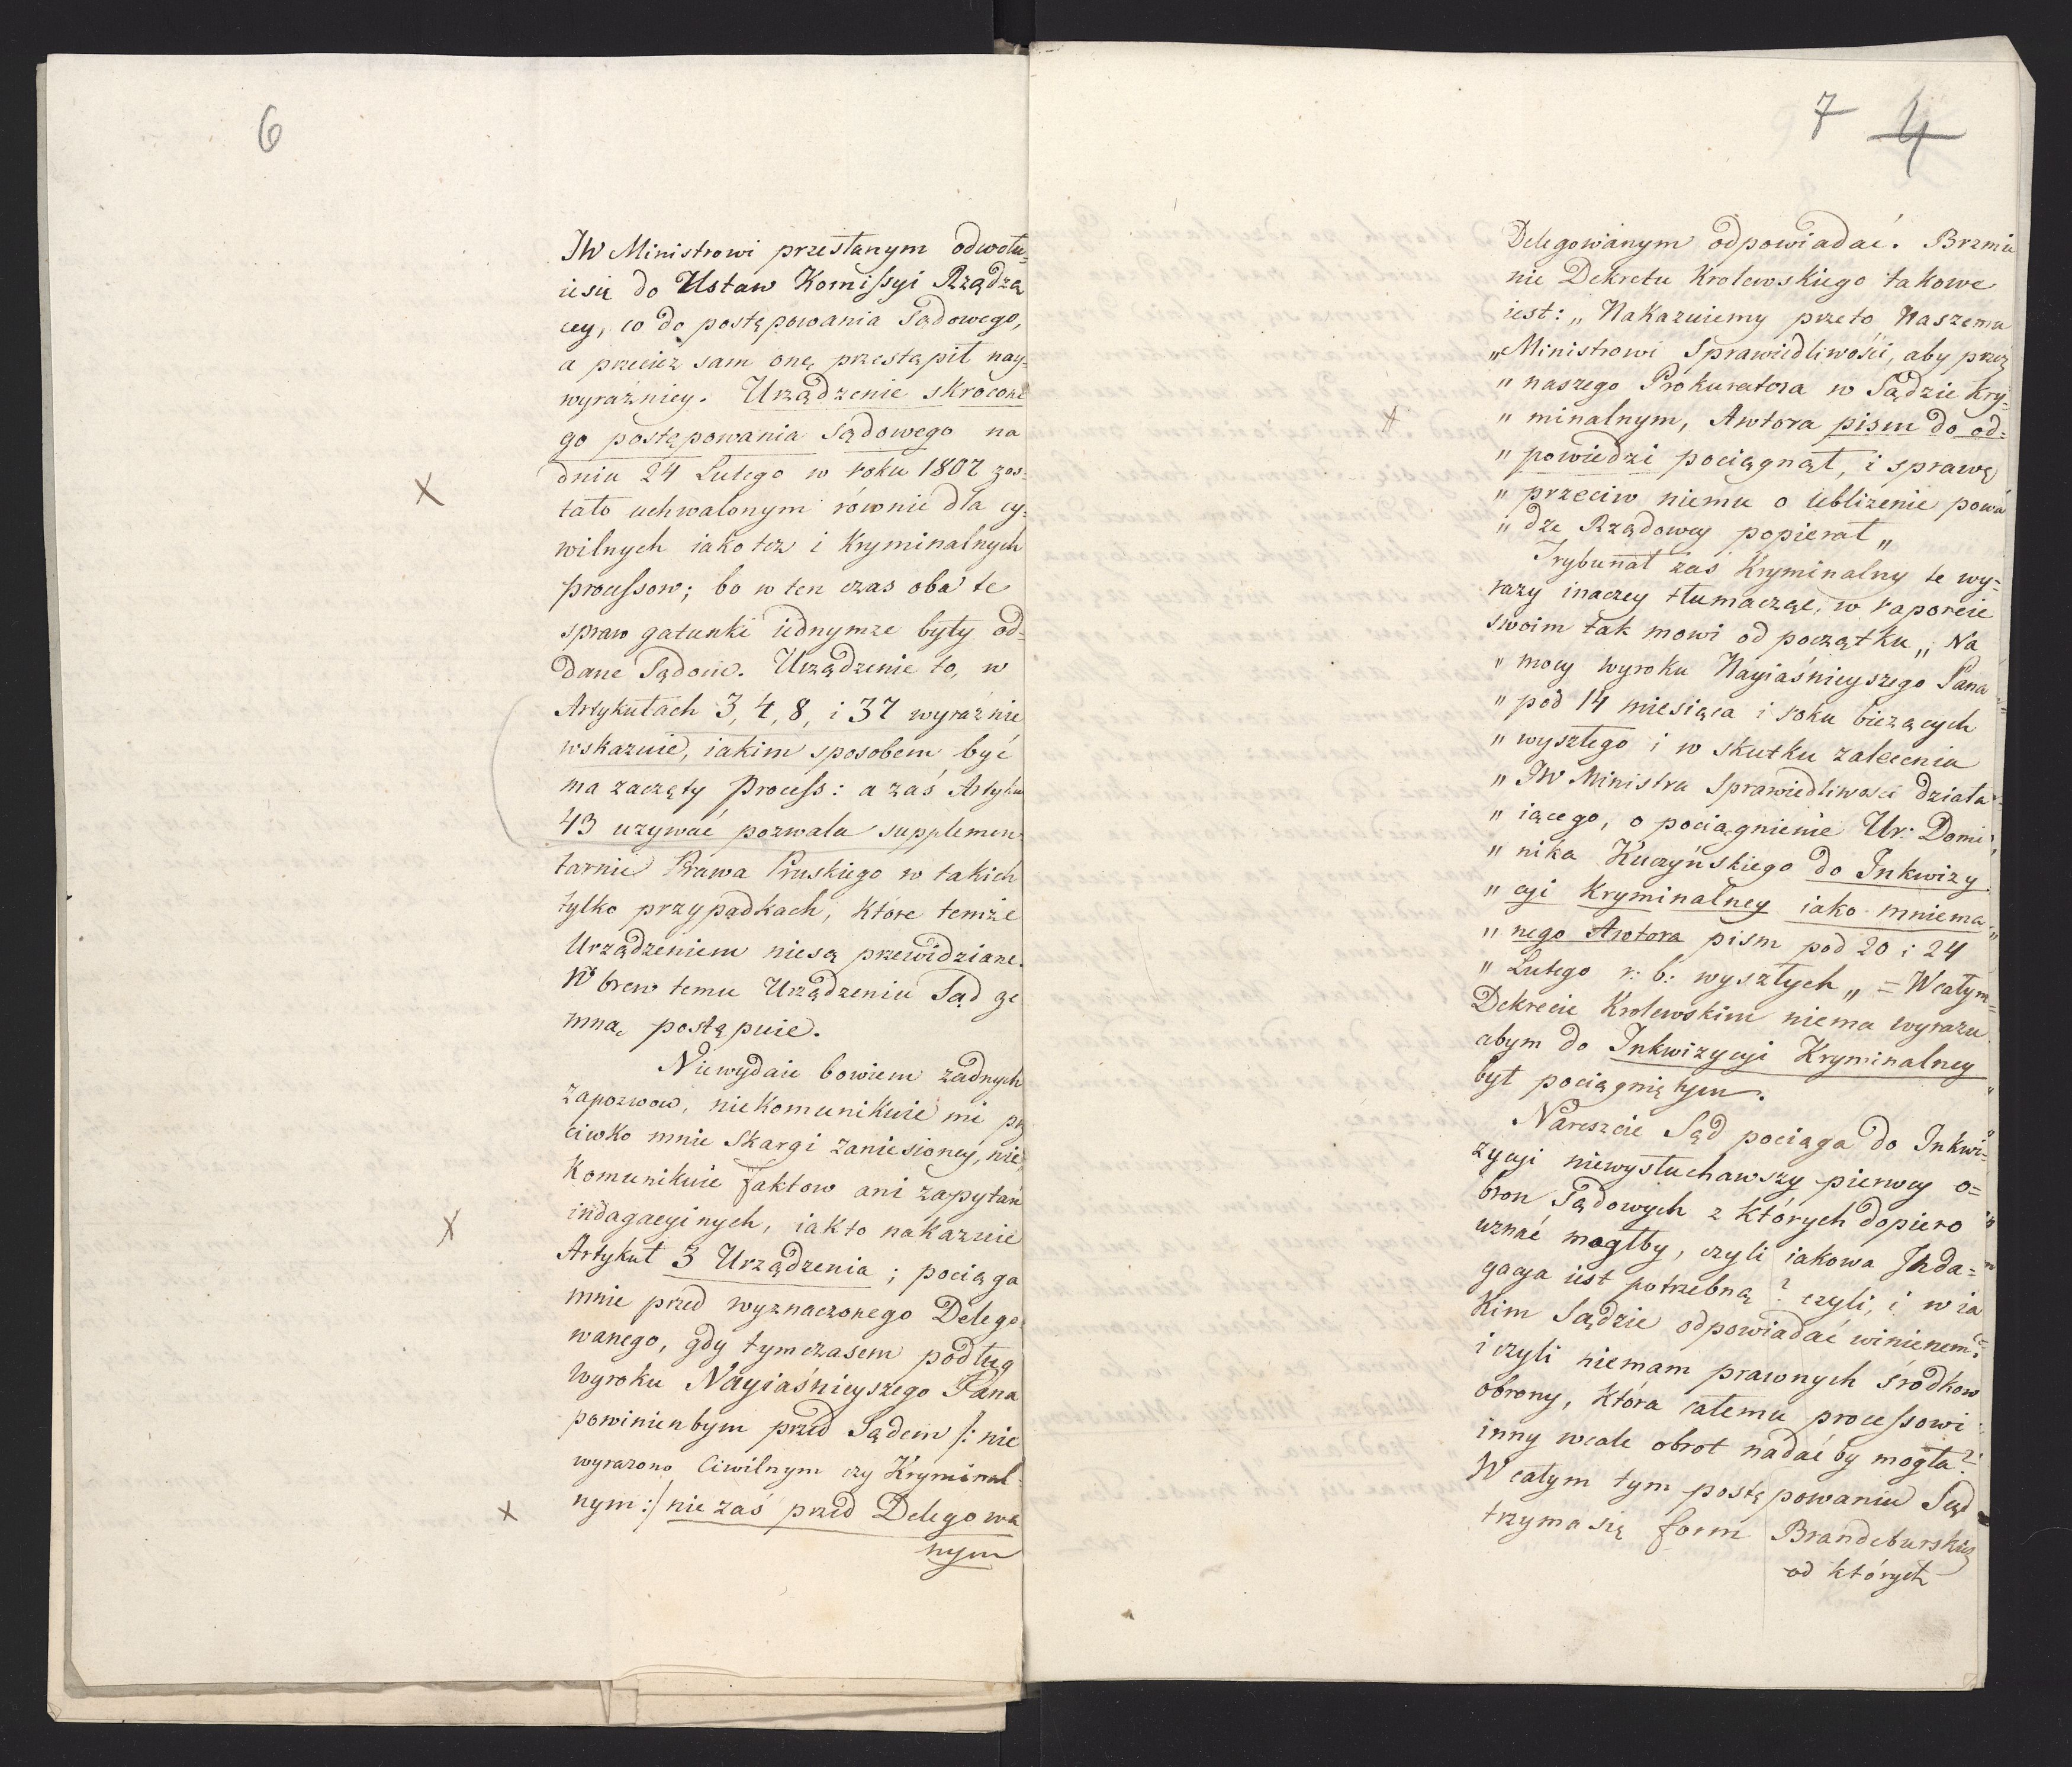 6
JW Ministrowi przesłanym odwołu=
ie się do Ustaw Komissyi Rządzą
cey, co do postępowania Sądowego,
a przecież sam onę przestąpił nay=
wyraźniey. Urządzenie skrocone
go postępowania Sądowego na
dniu 24 Lutego w roku 1807 zos=
tało uchwalonym rownie dla cy=
wilnych iako też i Kryminalnych
processow; bo w ten czas oba te
spraw gatunki iednymże były od=
dane Sądom. Urządzenie to, w
Artykułach 3, 4, 8, i 37 wyraźnie
wskazuie, iakim sposobem być
ma zaczęty Process: a zaś Artykuł
43 używać pozwala supplemen=
tarnie Prawa Pruskiego w takich
tylko przypadkach, które temże
Urządzeniem niesą przewidziane.
W brew temu Urządzeniu Sąd ze
mną postępuie.
Niewydaie bowiem żadnych
zapozwow, niekomunikuie mi prze
ciwko mnie Skargi zaniesioney, nie
Komunikuie faktow ani zapytań
indagacyinych, iak to nakazuie
Artykuł 3 Urządzenia; pociąga
mnie przed wyznaczonego Delego
wanego, gdy tymczasem podług
Wyroku Nayiaśnieyszego Pana
powinienbym przed Sądem /: nie
wyrażono Ciwilnym czy Kryminal=
nym :/ nie zaś przed Delegowa
nym
7 4
Delegowanym odpowiadać. Brzmie
nie Dekretu Krolewskiego takowe
iest: „ Nakazuiemy przeto Naszemu
„ Ministrowi Sprawiedliwości, aby przez
„ naszego Prokuratora w Sądzie Kry=
„ minalnym, Awtora pism do od=
„ powiedzi pociągnął, i sprawę
„ przeciw niemu o ubliżenie powa
„ dze Rządowey popierał „
Trybunał zaś Kryminalny te wy=
razy inaczey tłumacząc, w raporcie
swoim tak mowi od początku „ Na
„ mocy wyroku Nayiaśnieyszego Pana
„ pod 14 miesiąca i roku bieżących
„ wyszłego i w skutku zalecenia
„ JW Ministra Sprawiedliwości działa=
„ iącego, o pociągnienie Ur: Domi
„ nika Kuczyńskiego do Inkwizy
„ cyi Kryminalney iako mniema
„ nego Awtora pism pod 20 i 24
„ Lutego r: b: wyszłych „ = W całym
Dekrecie Krolewskim niema wyrazu
abym do Inkwizycyi Kryminalney
był pociągniętym.
Nareszcie Sąd pociąga do Inkwi=
zycyi niewysłuchawszy pierwey o=
bron Sądowych z których dopiero
uznać mogłby, czyli iakowa Inda=
gacya iest potrzebną? czyli, i w ia
kim Sądzie odpowiadać winienem?
i czyli niemam prawnych środkow
obrony, która całemu processowi
inny wcale obrot nadać by mogła?
W całym tym postępowaniu Sąd
trzyma się form Brandeburskich
od których